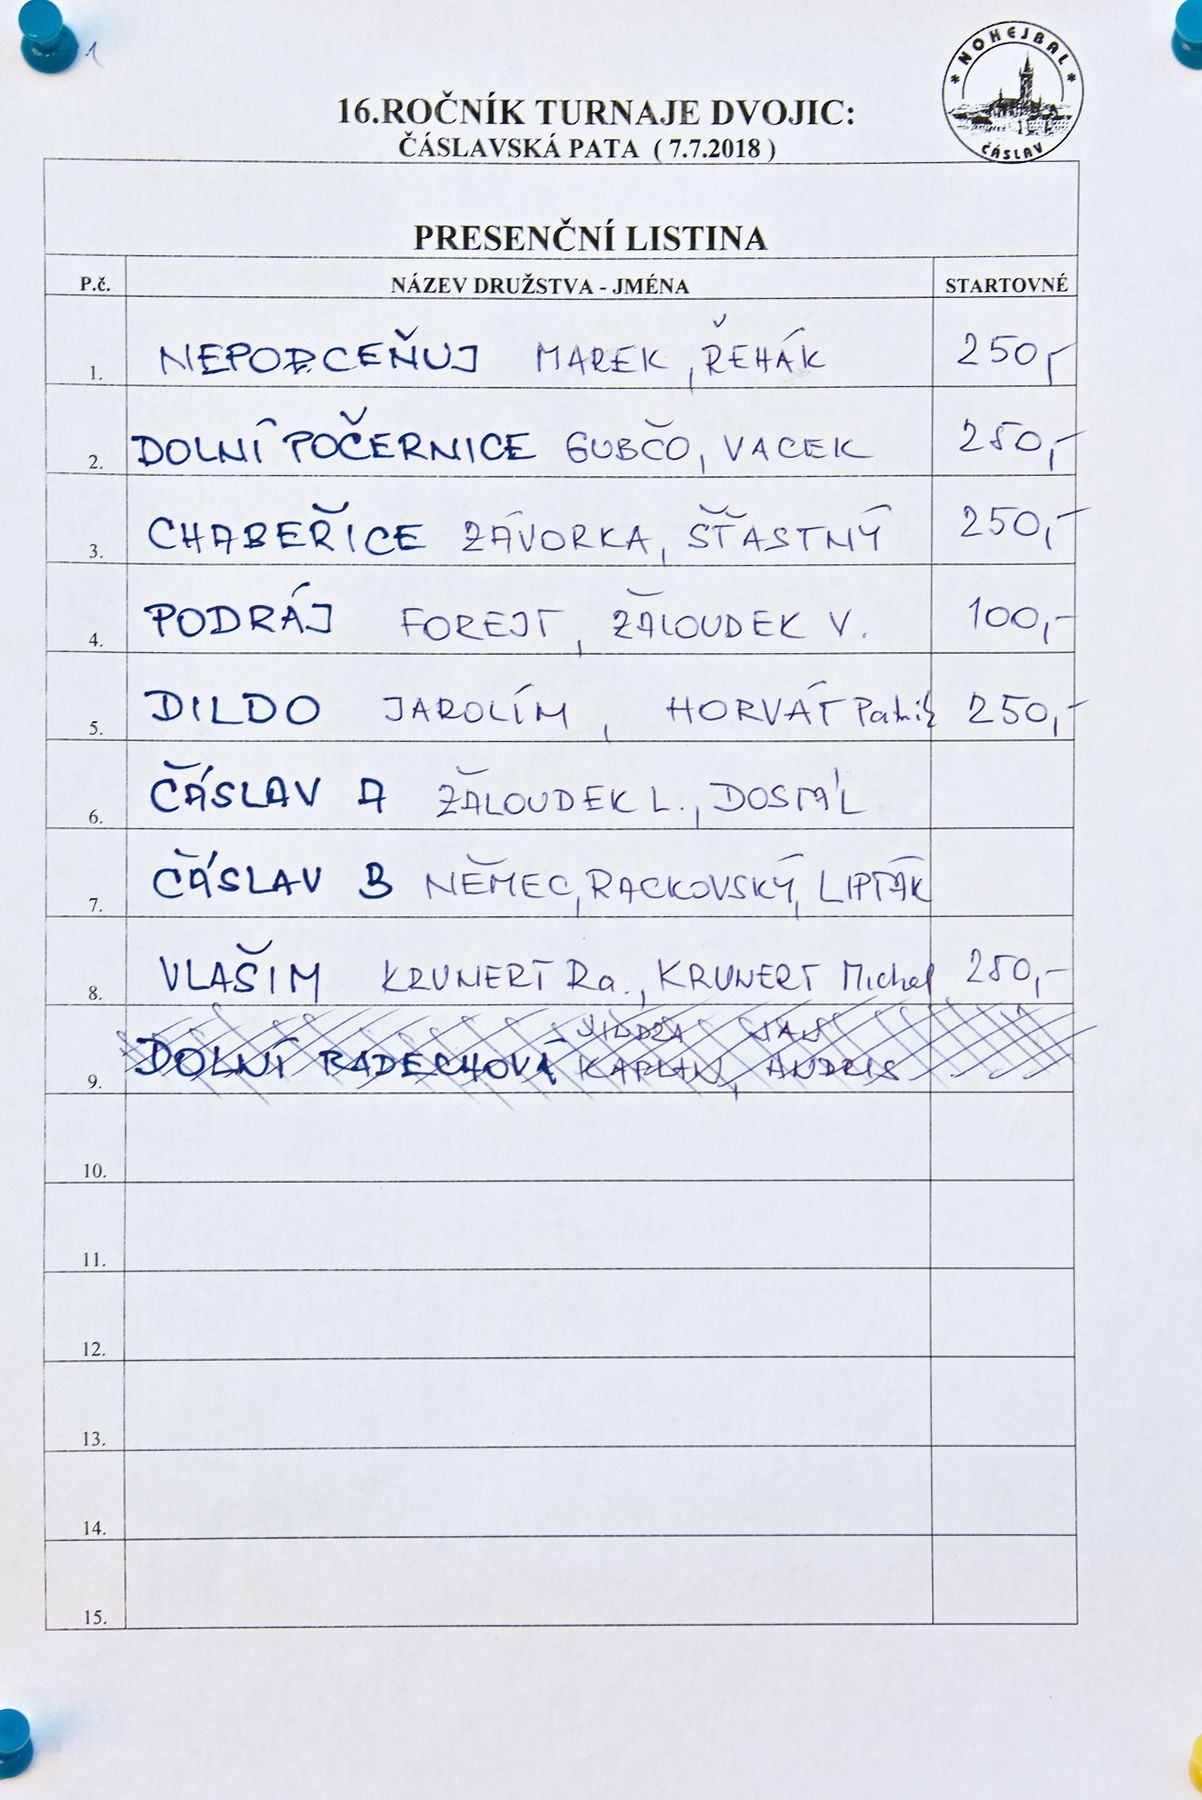 1
* NOHEJBAL *
ČÁSLAV
16.ROČNÍK TURNAJE DVOJIC:
ČÁSLAVSKÁ PATA ( 7.7.2018 )
PRESENČNÍ LISTINA
P.č. NÁZEV DRUŽSTVA - JMÉNA STARTOVNÉ
1. NEPODCEŇUJ MAREK, ŘEHÁK 250,-
2. DOLNÍ POČERNICE GUBČO, VACEK 250,-
3. CHABEŘICE ZÁVORKA, ŠŤASTNÝ 250,-
4. PODRÁJ FOREJT, ŽALOUDEK V. 100,-
5. DILDO JAROLÍM, HORVÁT Patrik 250,-
6. ČÁSLAV A ŽALOUDEK L., DOSTÁL
7. ČÁSLAV B NĚMEC, RACKOVSKÝ, LIPTÁK
8. VLAŠIM KRUNERT Ra., KRUNERT Michal 250,-
JAN
9. DOLNÍ RADECHOVÁ KAPLAN, ANDRIS
10.
11.
12.
13.
14.
15.